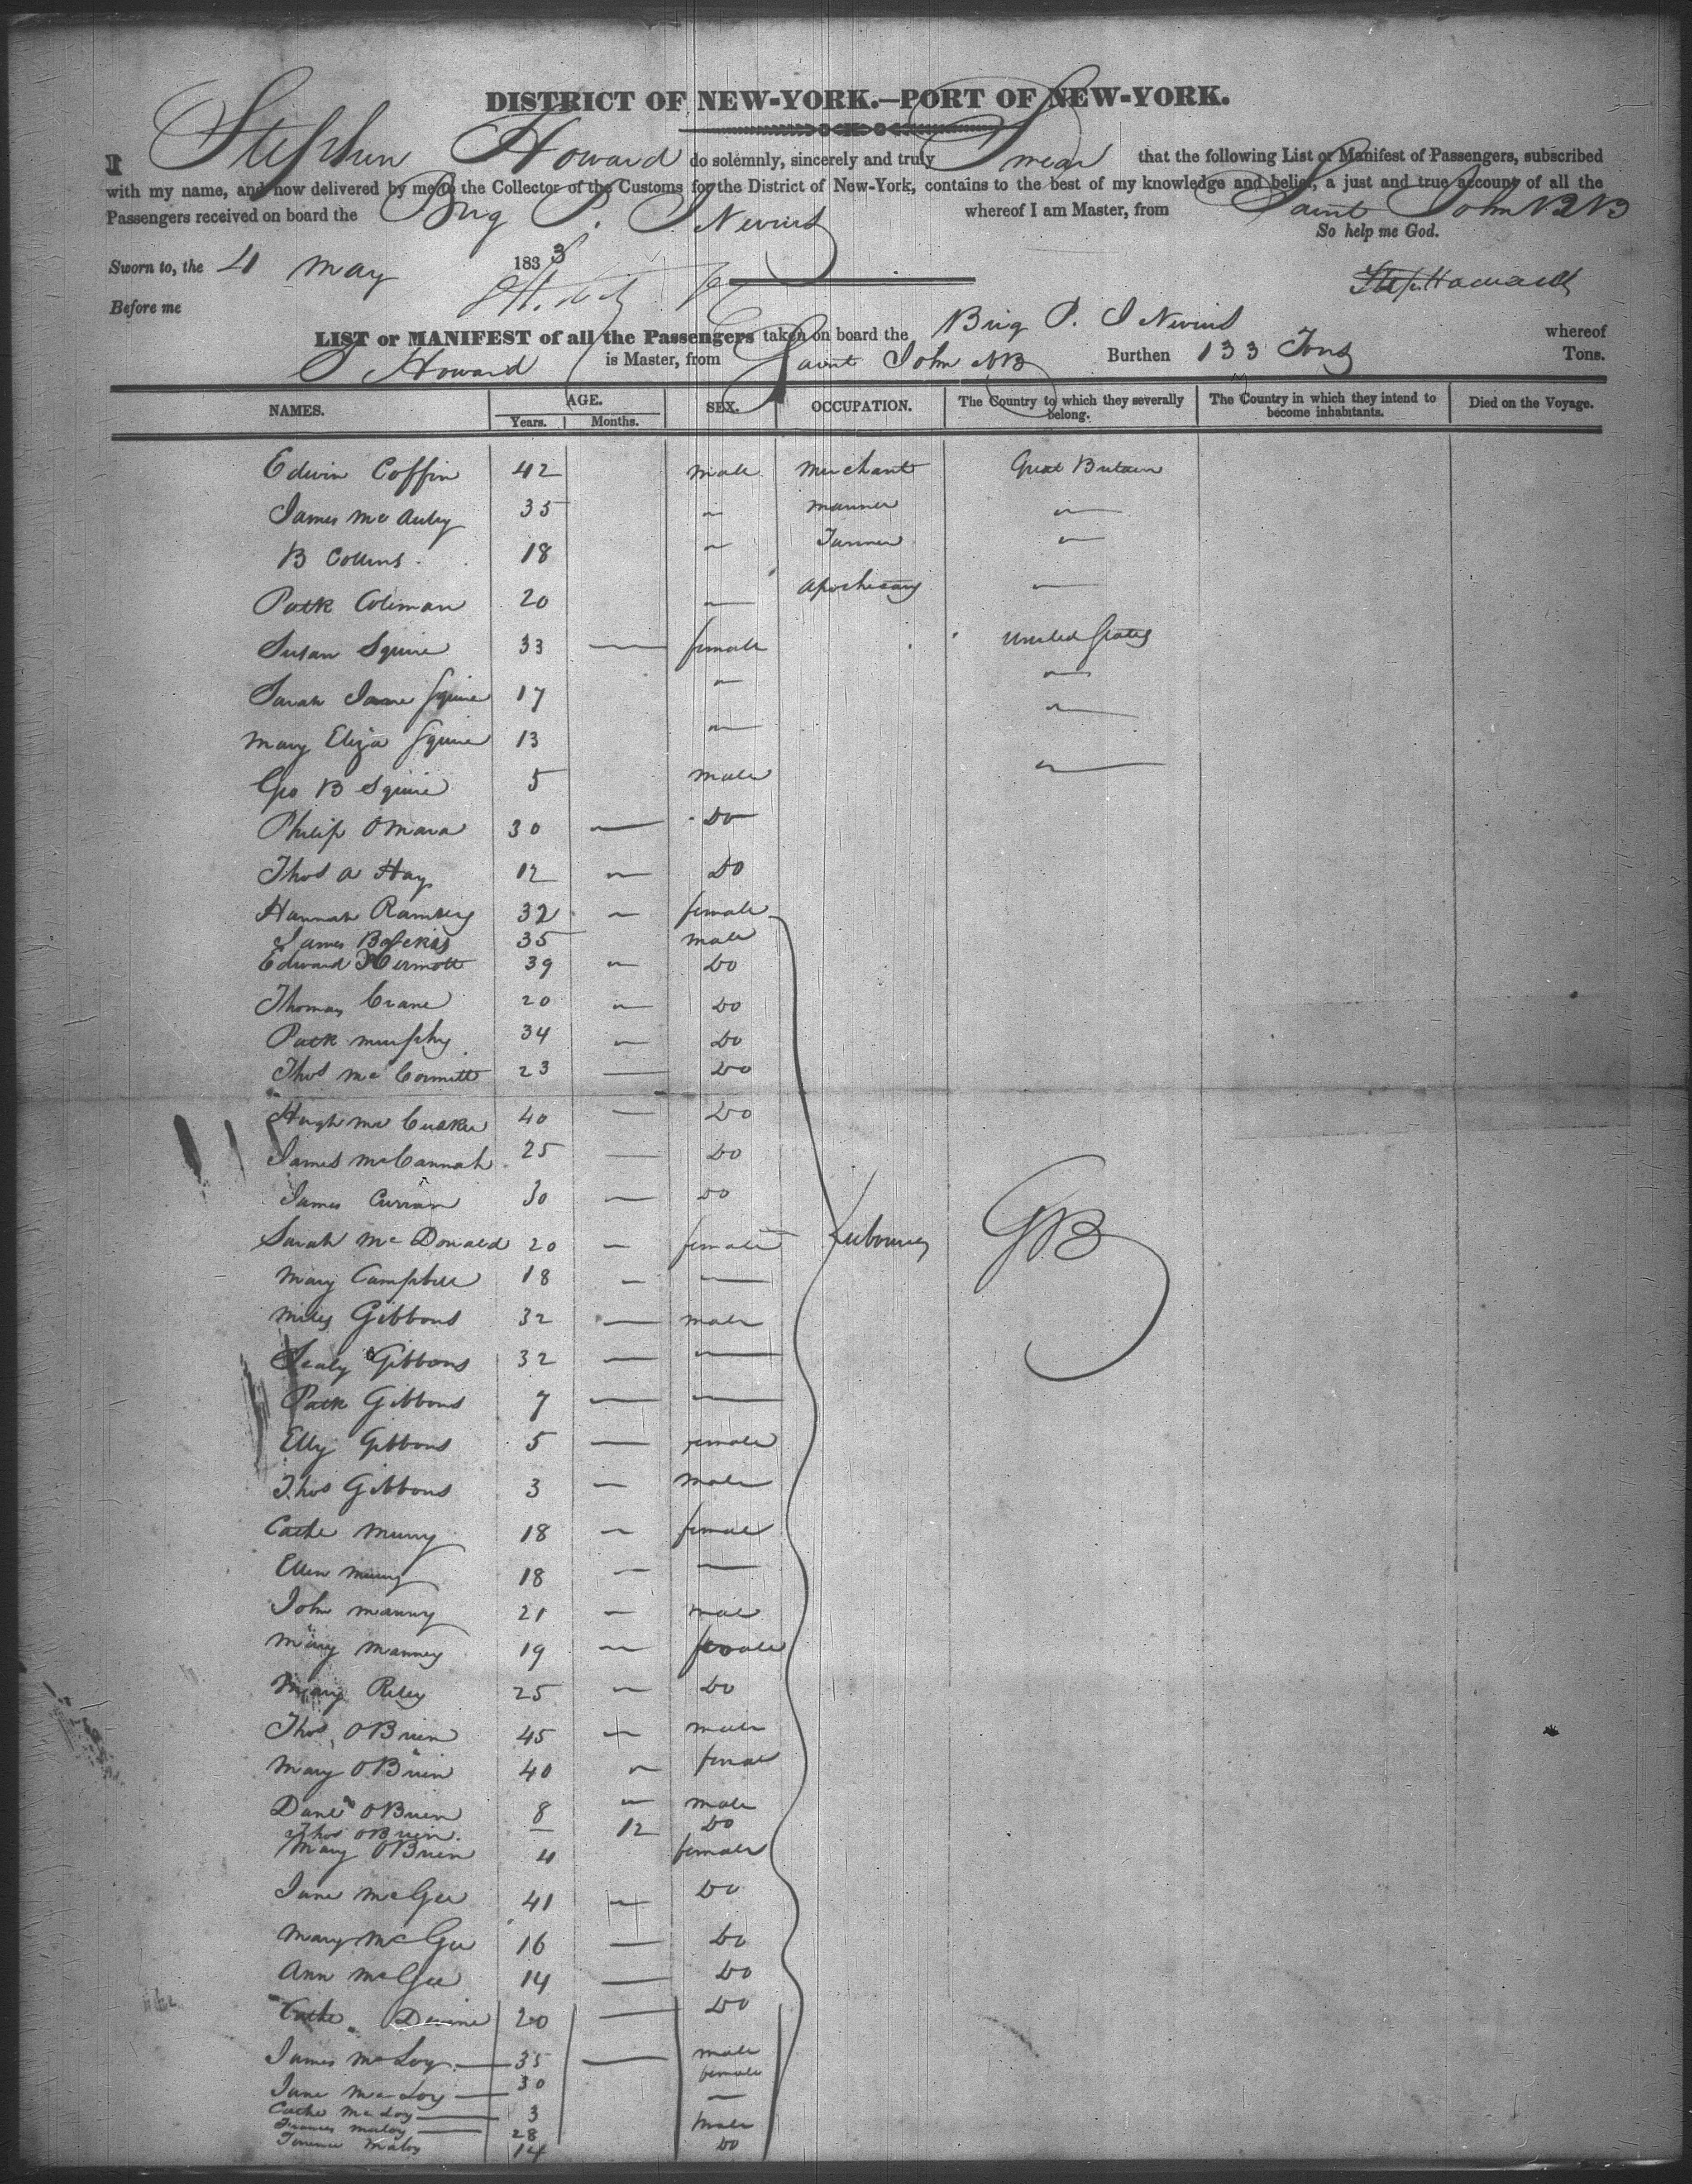 DISTRICT OF NEW-YORK.—PORT OF NEW-YORK.
I Stephen Howard do solemnly, sincerely and truly Swear that the following List or Manifest of Passengers, subscribed
with my name, and now delivered by me to the Collector of the Customs for the District of New-York, contains to the best of my knowledge and belief, a just and true account of all the
Passengers received on board the Brig P. I Nevius whereof I am Master, from Saint John NB
So help me God.
Sworn to, the 4 may 1833
Before me
Step. Howard
LIST or MANIFEST of all the Passengers taken on board the Brig P. I Nevius whereof
S Howard is Master, from Saint John NB Burthen 133 Tons Tons.
NAMES. AGE. SEX. OCCUPATION. The Country to which they severally belong. The Country in which they intend to become inhabitants. Died on the Voyage.
Years. Months.
Edwin Coffin 42 male merchant Great Britain
James Mc Auley 35 " mariner "
B Collins 18 " "
Patk Coleman 20 " apothecary "
Susan Squire 33 — female United States
Sarah Jane Squire 17 " "
Mary Eliza Squire 13 " "
Geo B Squire 5 male "
Philip OMara 30 — Do
Thos A Hay 12 — Do
Hannah Ramsey 32 — female
James 35 male
Edward 39 — Do
Thomas Crane 20 — Do
Patk Murphy 34 — Do
Thos Mc 23 — Do
Hugh Mc Cusker 40 — Do
James McCannah 25 — Do
James Curran 30 — Do
Sarah Mc Donald 20 — female Labourers GB
Mary Campbell 18 — —
Miles Gibbons 32 — male
Gibbons 32 — —
Patk Gibbons 7 — —
Elly Gibbons 5 — female
Thos Gibbons 3 — male
Cathe Murry 18 — female
Ellen Murry 18 — —
John Manny 21 — male
Mary Manney 19 — female
Mary Riley 25 — Do
Thos OBrien 45 — male
Mary OBrien 40 — female
Danl OBrien 8 — male
Thos OBrien — 12 Do
Mary OBrien 4 female
Jane McGee 41 — Do
Mary McGee 16 — Do
Ann McGee 14 — Do
Cathe Devine 20 — Do
James McLoy 35 — male
Jane McLoy 30 female
Cathe McLoy 3 —
Maloy 28 male
Terence Maloy 14 Do